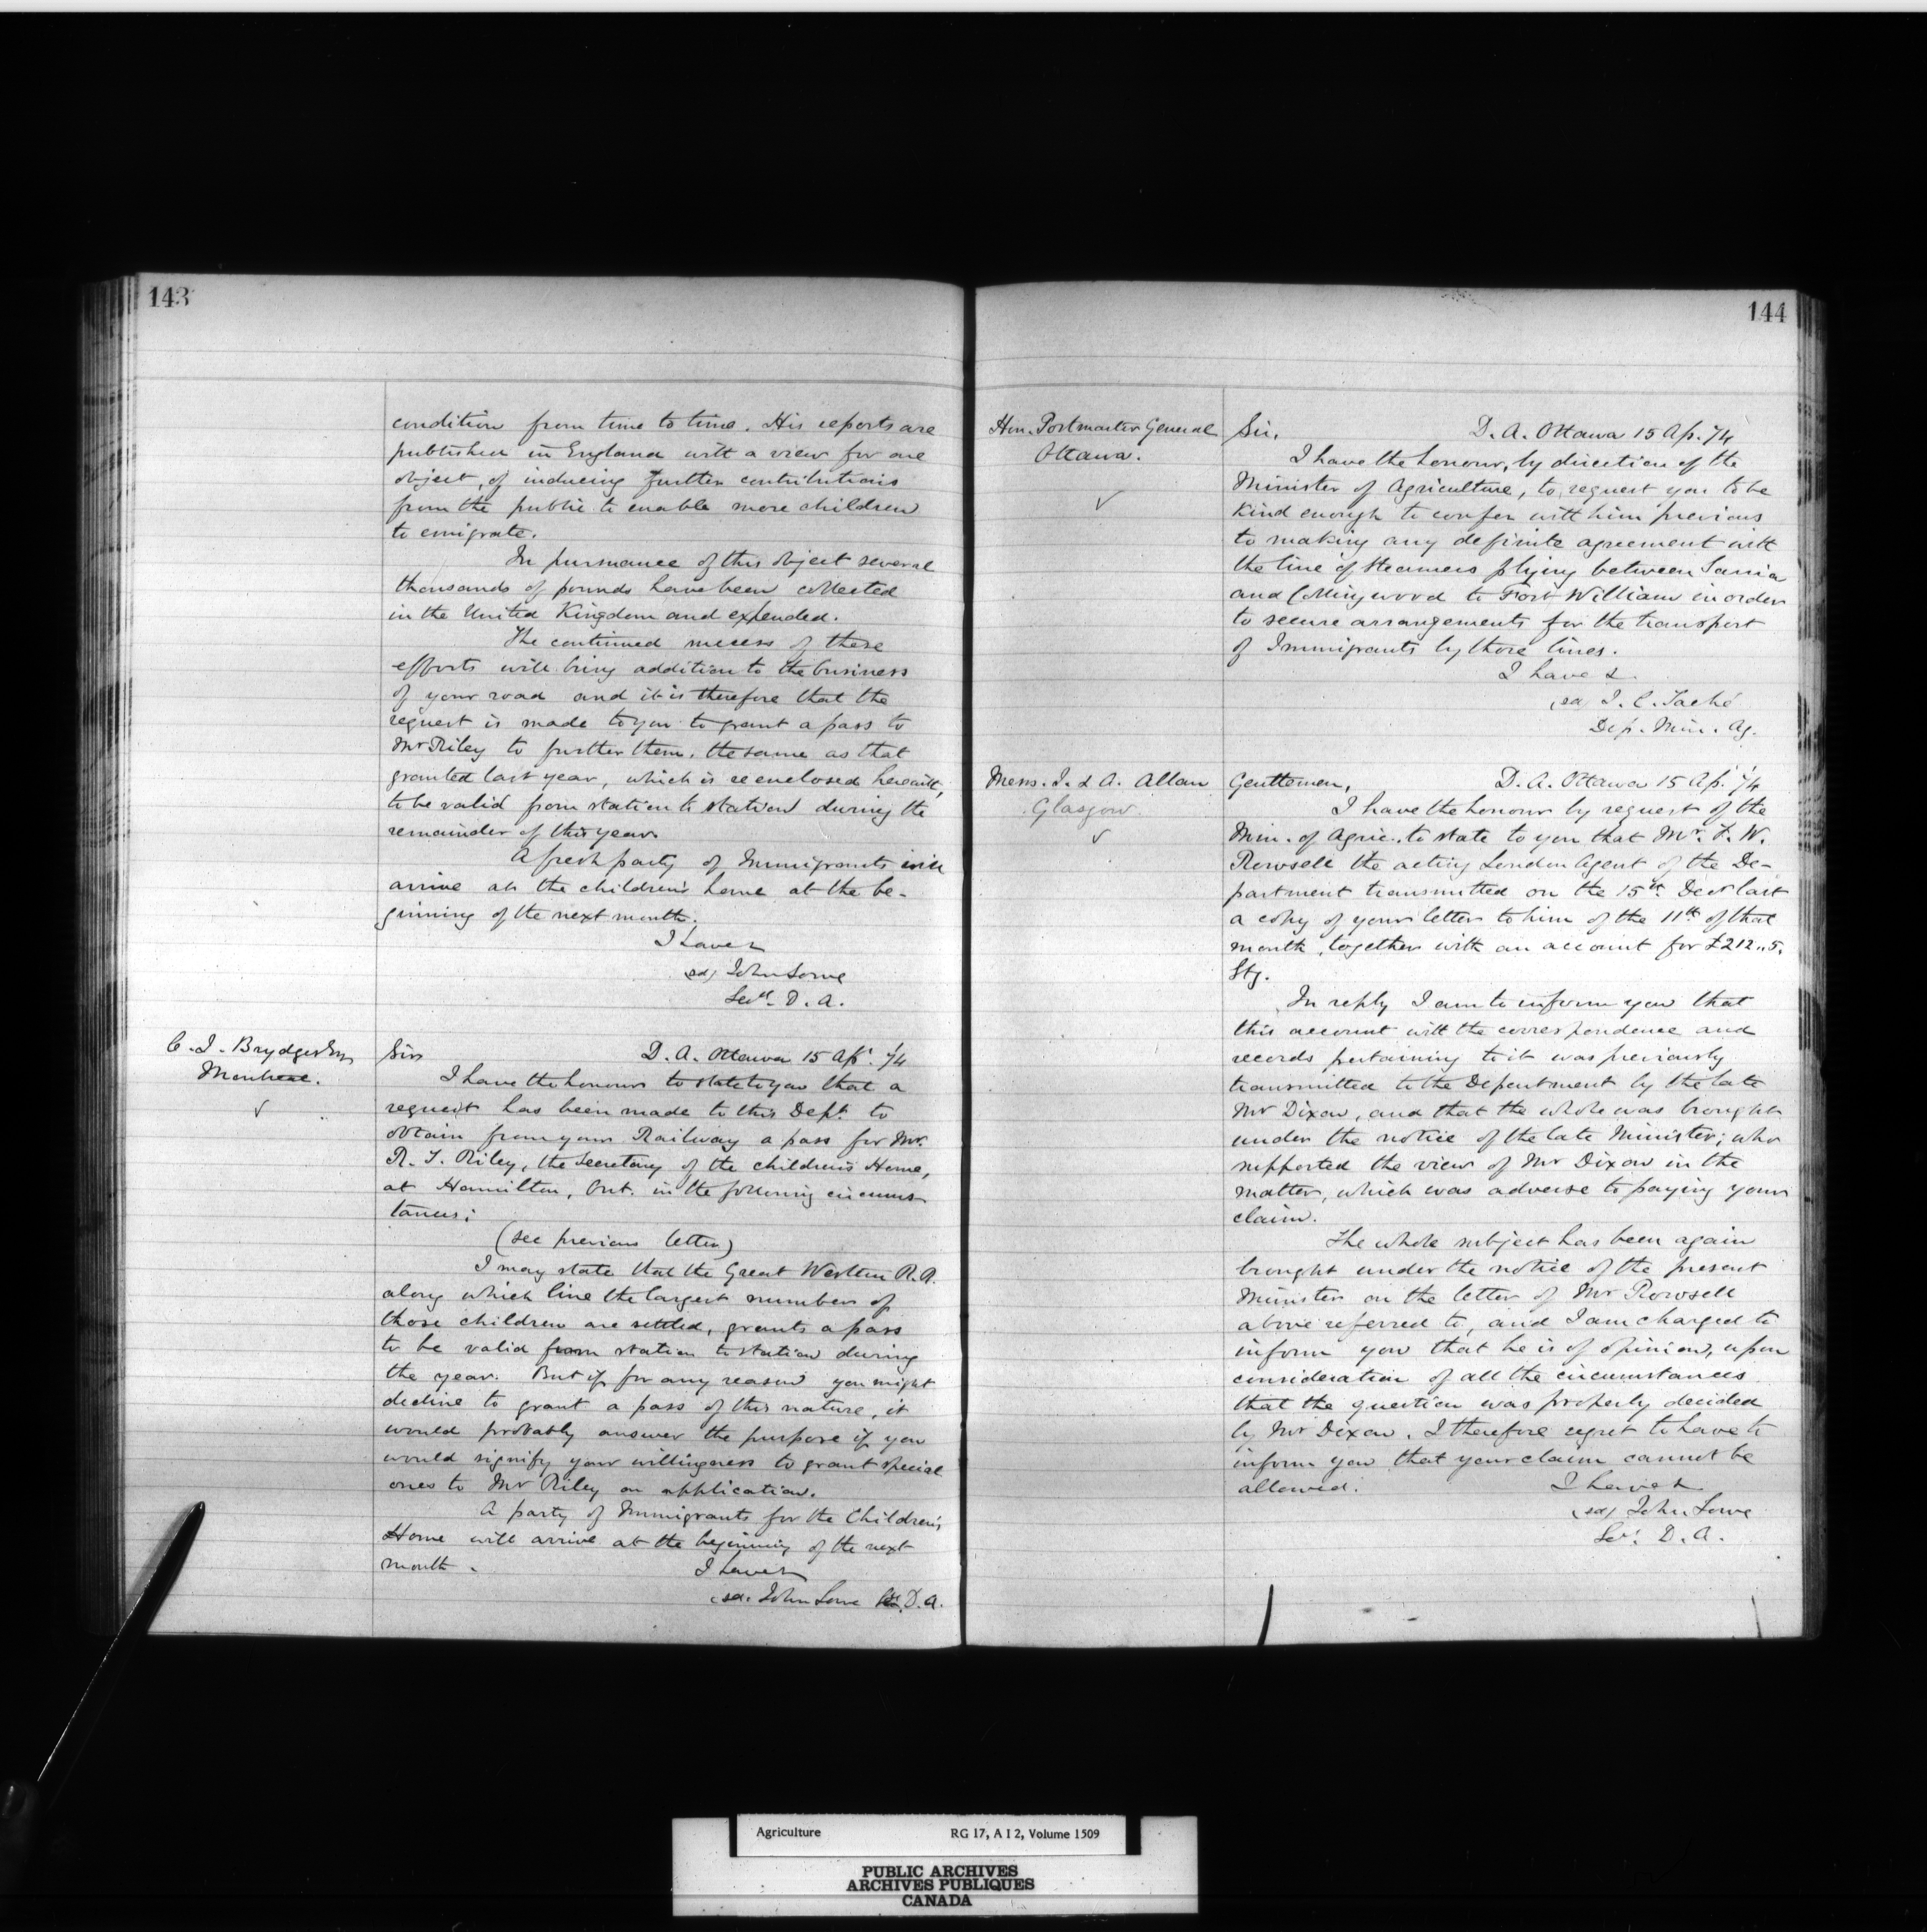 143
condition from time to time. His reports are
published in England with a view for one
object, of inducing further contributions
from the public to enable more children
to emigrate.
In pursuance of this object several
thousands of pounds have been collected
in the United Kingdom and expended.
The continued success of these
efforts will bring addition to the business
of your road and it is therefore that the
request is made to you to grant a pass to
Mr Riley to further them, the same as that
granted last year, which is reenclosed herewith,
to be valid from station to station during the
remainder of this year.
A fresh party of Immigrants will
arrive at the children's home at the be-
ginning of the next month.
I have &
(sd) John Lowe
Secy. D. A.
C. J. Brydges Esq
Montreal.
✓
Sir D. A. Ottawa 15 Apl. 74
I have the honour to state to you that a
request has been made to this Dept. to
obtain from your Railway a pass for Mr.
R. T. Riley, the Secretary of the children's Home,
at Hamilton, Ont. in the following circums-
tances:
(see previous letter)
I may state that the Great Western R.R.
along which line the largest number of
those children are settled, grants a pass
to be valid from station to station during
the year. But if for any reason you might
decline to grant a pass of this nature, it
would probably answer the purpose if you
would signify your willingness to grant special
ones to Mr Riley on application.
A party of Immigrants for the Children's
Home will arrive at the beginning of the next
month. I have &
(sd. John Lowe D. A.
144
Hon. Postmaster General
Ottawa.
✓
Sir, D. A. Ottawa 15 Ap. 74
I have the honour, by direction of the
Minister of Agriculture, to request you to be
kind enough to confer with him previous
to making any definite agreement with
the line of steamers plying between Sarnia
and Collingwood to Fort William in order
to secure arrangements for the transport
of Immigrants by those lines.
I have &
(sd J. C. Taché
Dep. Min. Ag.
Mess. J. & A. Allan
Glasgow.
✓
Gentlemen, D. A. Ottawa 15 Ap. 74
I have the honour by request of the
Min. of Agric. to state to you that Mr. F. W.
Rowsell the acting London Agent of the De-
partment transmitted on the 15th Decr last
a copy of your letter to him of the 11th of that
month, together with an account for £212..5.
Stg.
In reply I am to inform you that
this account with the correspondence and
records pertaining to it was previously
transmitted to the Department by the late
Mr Dixon, and that the whole was brought
under the notice of the late Minister; who
supported the view of Mr Dixon in the
matter, which was adverse to paying your
claim.
The whole subject has been again
brought under the notice of the present
Minister on the letter of Mr Rowsell
above referred to, and I am charged to
inform you that he is of opinion, upon
consideration of all the circumstances
that the question was properly decided
by Mr Dixon. I therefore regret to have to
inform you that your claim cannot be
allowed. I have &
(sd) John Lowe
Sec. D. A.
Agriculture RG 17, A I 2, Volume 1509
PUBLIC ARCHIVES
ARCHIVES PUBLIQUES
CANADA